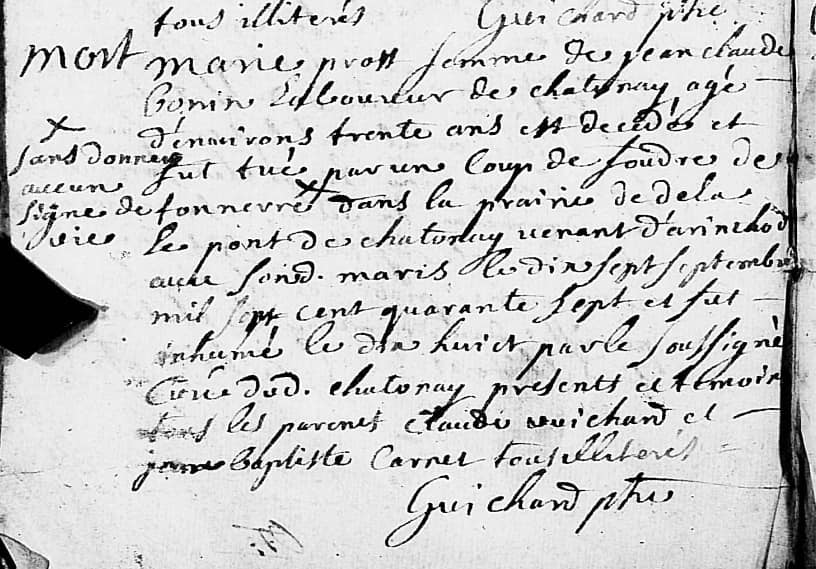 tous illiterés Guichard ptre
mort
marie prost femme de jean claude
bonin laboureur de chatonay agé
d'environs trente ans est decedé et
fut tué par un Coup de foudre de
tonnerre x dans la prairie de dela
le pont de chatonay venant d'arinthod
avec sond. maris le dix sept septembre
mil sept cent quarante sept et fut
inhumé le dix huict par le soussigné
Curé dud. chatonay presents et temoin
tous les parents Claude Guichard et
jean baptiste Carnet tous illiterés
Guichard ptre
x
sans donner
aucun
signe de
vie